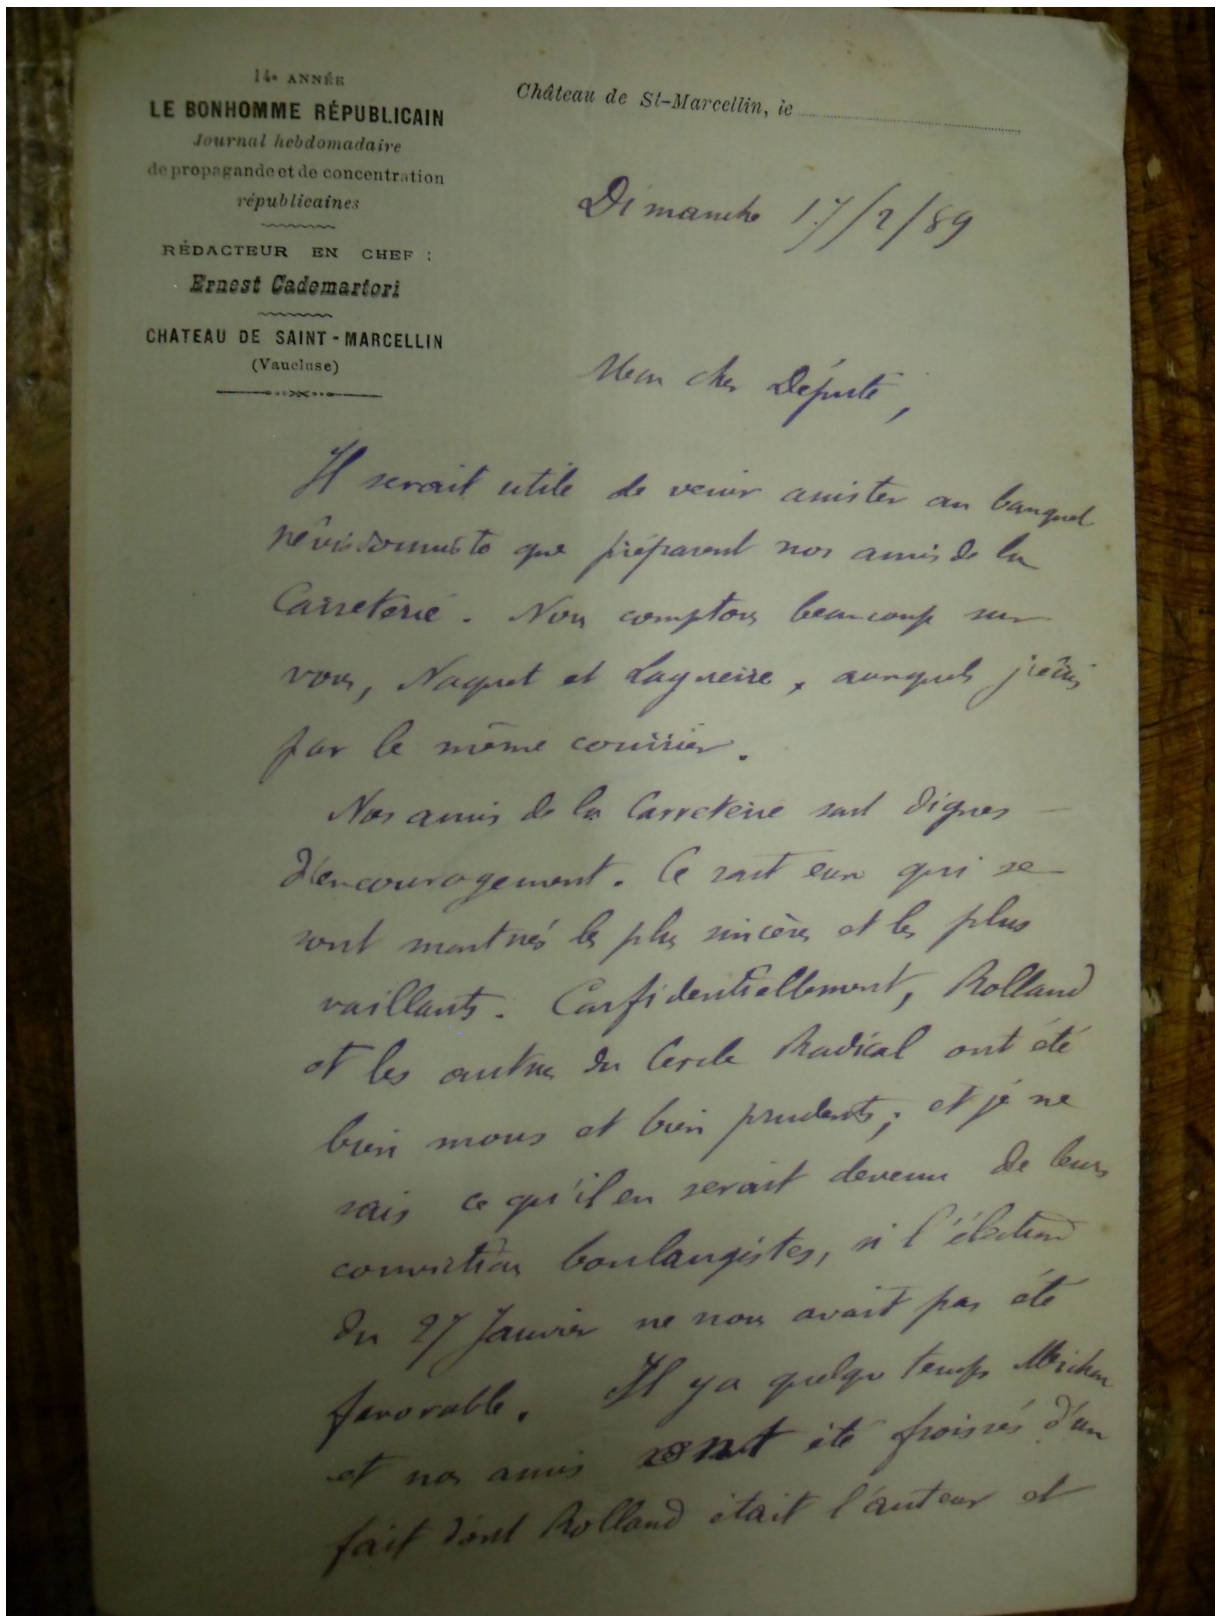 14e ANNÉE
LE BONHOMME RÉPUBLICAIN
Journal hebdomadaire
de propagande et de concentration
républicaines
RÉDACTEUR EN CHEF :
Ernest Cademartori
CHATEAU DE SAINT-MARCELLIN
(Vaucluse)
Château de St-Marcellin, le
Dimanche 17/2/89
Mon cher Député,
Il serait utile de venir assister au banquet
révisionniste que préparent nos amis de la
Carreterie. Nous comptons beaucoup sur
vous, Naquet et Laguerre, auxquels j'écris
par le même courrier.
Nos amis de la Carreterie sont dignes
d'encouragement. Ce sont eux qui se
sont montrés les plus sincères et les plus
vaillants. Confidentiellement, Rolland
et les autres du Cercle Radical ont été
bien mous et bien prudents; et je ne
sais ce qu'il en serait devenu de leurs
convictions boulangistes, si l'élection
du 27 Janvier ne nous avait pas été
favorable. Il y a quelque temps
et nos amis ont été froissés d'un
fait dont Rolland était l'auteur et